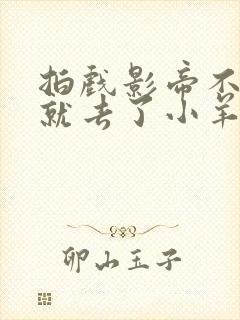 拍戏影帝不
就去了小羊
卯山玉子